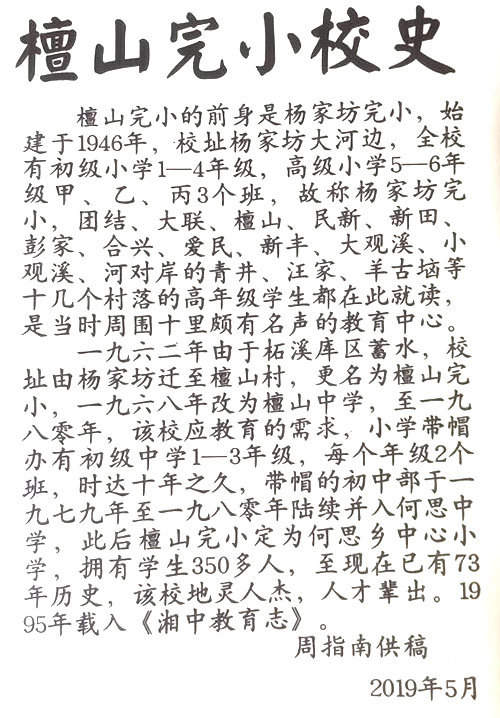 檀山完小校史
檀山完小的前身是杨家坊完小，始
建于1946年，校址杨家坊大河边，全校
有初级小学1—4年级，高级小学5—6年
级甲、乙、丙3个班，故称杨家坊完
小，团结、大联、檀山、民新、新田、
彭家、合兴、爱民、新丰、大观溪、小
观溪、河对岸的青井、江家、羊古垴等
十几个村落的高年级学生都在此就读，
是当时周围十里颇有名声的教育中心。
一九六二年由于柘溪库区蓄水，校
址由杨家坊迁至檀山村，更名为檀山完
小，一九六八年改为檀山中学，至一九
八零年，该校应教育的需求，小学带帽
办有初级中学1—3年级，每个年级2个
班，时达十年之久，带帽的初中部于一
九七九年至一九八零年陆续并入何思中
学，此后檀山完小定为何思乡中心小
学，拥有学生350多人，至现在已有73
年历史，该校地灵人杰，人才辈出。19
95年载入《湘中教育志》。
周指南供稿
2019年5月